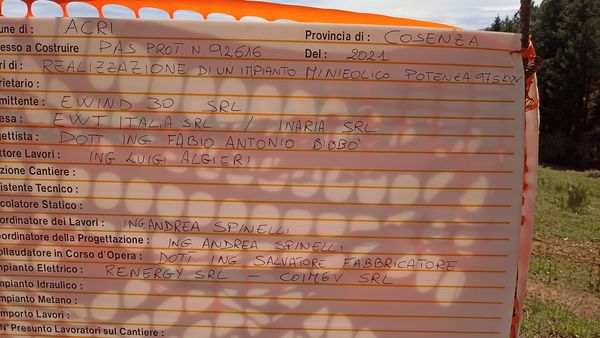 une di : ACRI Provincia di : COSENZA
esso a Costruire PAS PROT N 92616 Del : 2021
ri di : REALIZZAZIONE DI UN IMPIANTO MINIEOLICO POTENZA 975KW
prietario :
mittente : EWIND 30 SRL
esa : EWT ITALIA SRL / INARIA SRL
gettista : DOTT ING FABIO ANTONIO BIBBO'
ttore Lavori : ING LUIGI ALGIERI
zione Cantiere :
istente Tecnico :
colatore Statico :
ordinatore dei Lavori : ING ANDREA SPINELLI
ordinatore della Progettazione : ING ANDREA SPINELLI
ollaudatore in Corso d'Opera : DOTT ING SALVATORE FABBRICATORE
mpianto Elettrico : RENERGY SRL - COIMEV SRL
mpianto Idraulico :
mpianto Metano :
mporto Lavori :
N° Presunto Lavoratori sul Cantiere :